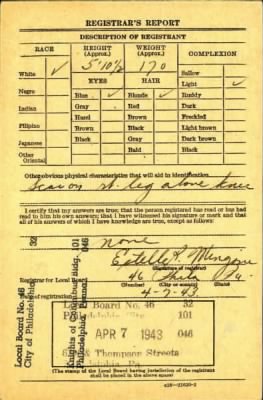 REGISTRAR'S REPORT
DESCRIPTION OF REGISTRANT
RACE HEIGHT (Approx.) WEIGHT (Approx.) COMPLEXION
White ✓ 5' 10½ 170 Sallow
EYES HAIR Light ✓
Negro Blue ✓ Blonde ✓ Ruddy
Indian Gray Red Dark
Filipino Hazel Brown Freckled
Japanese Brown Black Light brown
Other Oriental Black Gray Dark brown
Bald Black
Other obvious physical characteristics that will aid in identification
Scar on rt. leg above knee
I certify that my answers are true; that the person registered has read or has had
read to him his own answers; that I have witnessed his signature or mark and that
all of his answers of which I have knowledge are true, except as follows:
None
Estelle R.
(Signature of registrar)
Registrar for Local Board 46 Phila Pa.
(Number) (City or county)
Date of registration 4-7-43
Local Board No. 46 32
City of Philadelphia 101
APR 7 1943 046
Thompson Streets
(The stamp of the Local Board having jurisdiction of the registrant
shall be placed in the above space)
Local Board No. 46 32
City of Philadelphia 101
046